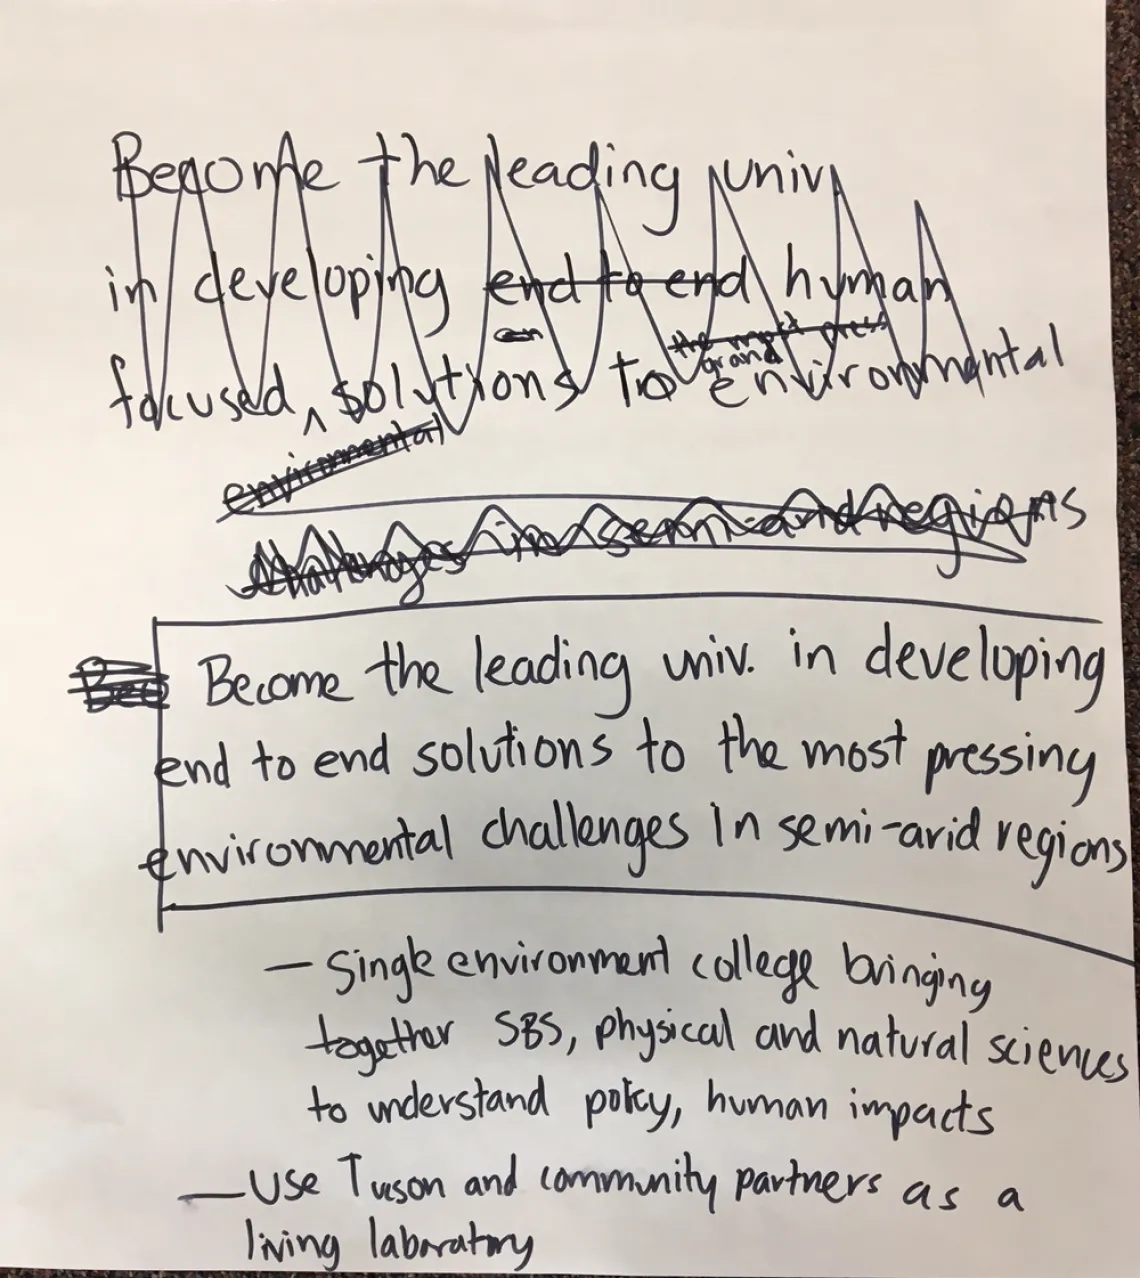 Become the leading univ.
in developing end to end human
the most press
grand
focused solutions to environmental
environmental
challenges in semi-arid regions
Bec Become the leading univ. in developing
end to end solutions to the most pressing
environmental challenges in semi-arid regions
— Single environment college bringing
together SBS, physical and natural sciences
to understand policy, human impacts
— Use Tucson and community partners as a
living laboratory